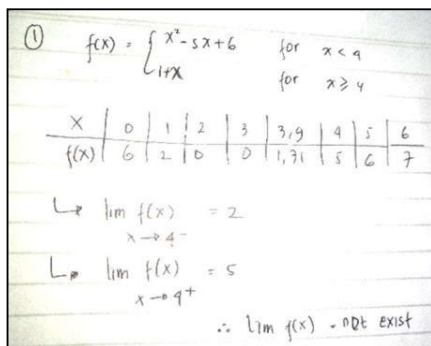 ① f(x) = { x² - 5x + 6 for x < 4
1+x for x ≥ 4
x | 0 | 1 | 2 | 3 | 3,9 | 4 | 5 | 6
f(x) | 6 | 2 | 0 | 0 | 1,71 | 5 | 6 | 7
↳ lim f(x) = 2
x → 4⁻
↳ lim f(x) = 5
x → 4⁺
∴ lim f(x) = not exist